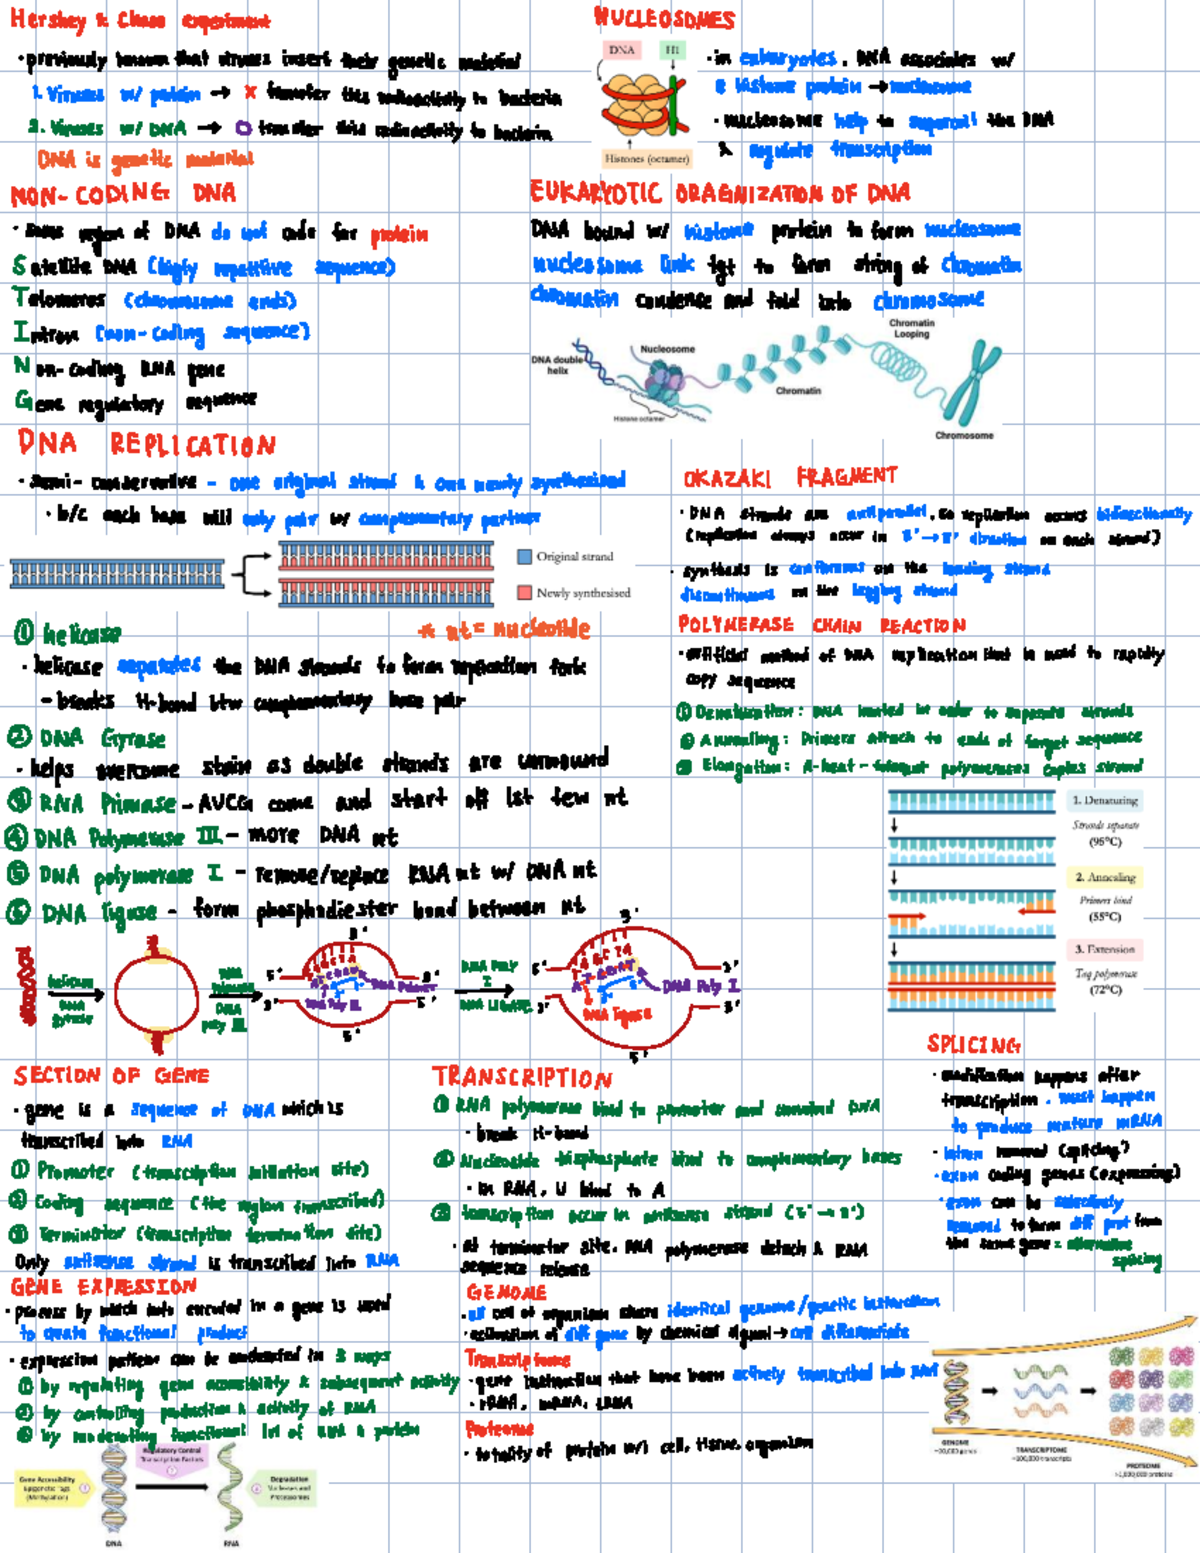 Hershey & Chase experiment
• previously known that viruses insert their genetic material
1. Viruses w/ protein → X transfer this radioactivity to bacteria
2. Viruses w/ DNA → O transfer this radioactivity to bacteria
DNA is genetic material
NUCLEOSOMES
DNA
H1
Histones (octamer)
• in eukaryotes, DNA associates w/
8 histone protein → nucleosome
• nucleosome help to supercoil the DNA
& regulate transcription
NON-CODING DNA
• some region of DNA do not code for protein
Satellite DNA (highly repetitive sequence)
Telomeres (chromosome ends)
Intron (non-coding sequence)
Non-coding RNA gene
Gene regulatory sequence
EUKARYOTIC ORAGNIZATION OF DNA
DNA bound w/ histone protein to form nucleosome
nucleosome link tgt to form string of chromatin
chromatin condense and fold into chromosome
DNA double helix
Nucleosome
Histone octamer
Chromatin
Chromatin Looping
Chromosome
DNA REPLICATION
• semi-conservative - one original strand & one newly synthesized
• b/c each base will only pair w/ complementary partner
Original strand
Newly synthesised
* nt = nucleotide
① helicase
• helicase separates the DNA strands to form replication fork
- breaks H-bond btw complementary base pair
② DNA Gyrase
• helps overcome strain as double strands are unwound
③ RNA Primase - AUCG come and start off 1st few nt
④ DNA Polymerase III - more DNA nt
⑤ DNA polymerase I - remove/replace RNA nt w/ DNA nt
⑥ DNA ligase - form phosphodiester bond between nt
OKAZAKI FRAGMENT
• DNA strands are antiparallel, so replication occurs bidirectionally
(replication always occur in 5'→3' direction on each strand)
• synthesis is continuous on the leading strand
discontinuous on the lagging strand
POLYMERASE CHAIN REACTION
• artificial method of DNA replication that is used to rapidly
copy sequence
① Denaturation: DNA heated in order to separate strands
② Annealing: Primers attach to ends of target sequence
③ Elongation: A heat-tolerant polymerases copies strand
1. Denaturing
Strands separate
(95°C)
2. Annealing
Primers bind
(55°C)
3. Extension
Taq polymerase
(72°C)
helicase
DNA Gyrase
RNA Primase
DNA Poly III
DNA Poly I
DNA Ligase
DNA Poly I
DNA ligase
SECTION OF GENE
• gene is a sequence of DNA which is
transcribed into RNA
① Promoter (transcription initiation site)
② Coding sequence (the region transcribed)
③ Terminator (transcription termination site)
Only antisense strand is transcribed into RNA
TRANSCRIPTION
① RNA polymerase bind to promoter and unwind DNA
• break H-bond
② Nucleoside triphosphate bind to complementary bases
• in RNA, U bind to A
③ transcription occur in antisense strand (5'→3')
• at terminator site, RNA polymerase detach & RNA
sequence release
SPLICING
• modification happens after
transcription, must happen
to produce mature mRNA
• intron removed (splicing)
• exon coding genes (expressing)
• exon can be selectively
removed to form diff prot from
the same gene = alternative
splicing
GENE EXPRESSION
• process by which info encoded in a gene is used
to create functional product
• expression pattern can be moderated in 3 ways
① by regulating gene accessibility & subsequent activity
② by controlling production & activity of RNA
③ by moderating functional lvl of RNA & protein
Gene Accessibility
Epigenetic Tags
(Methylation)
Regulatory Control
Transcription Factors
Degradation
Nucleases and
Proteasomes
DNA
RNA
GENOME
• all cell of organism share identical genome/genetic instruction
• activation of diff gene by chemical signal → cell differentiate
Transcriptome
• gene instruction that have been actively transcribed into RNA
• rRNA, mRNA, tRNA
Proteome
• totality of protein w/i cell, tissue, organism
GENOME
~20,000 genes
TRANSCRIPTOME
~100,000 transcripts
PROTEOME
>1,000,000 proteins